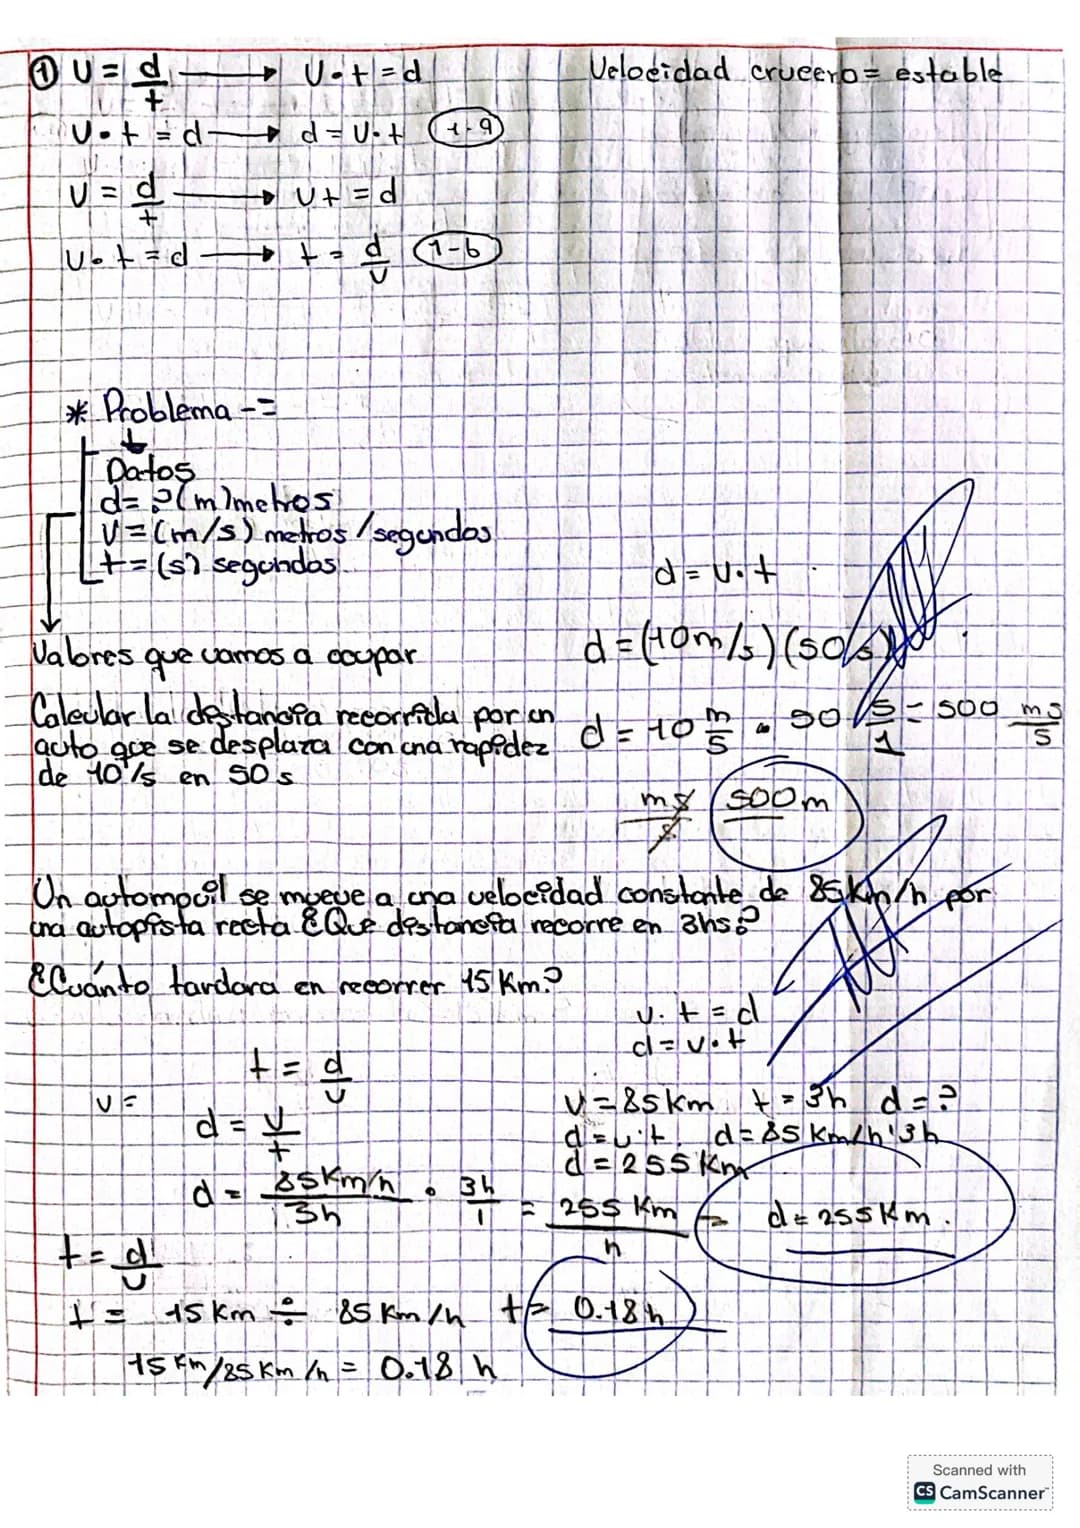 ① v = d/t → v·t = d
Velocidad crucero = estable
v·t = d → d = v·t (1-a)
v = d/t → vt = d
v·t = d → t = d/v (1-b)
* Problema -=
Datos
d = ? (m) metros
v = (m/s) metros/segundos
t = (s) segundos
Valores que vamos a ocupar
Calcular la distancia recorrida por un
auto que se desplaza con una rapidez
de 10 /s en 50 s
d = v·t
d = (10m/s)(50s)
d = 10 m/s · 50 s/1 = 500 ms/s
ms/s 500 m
Un automovil se mueve a una velocidad constante de 85 km/h por
una autopista recta ¿Que distancia recorre en 3hs?
¿Cuánto tardara en recorrer 15 Km?
v·t = d
d = v·t
t = d/v
v =
d = v/t
d = 85Km/h / 3h · 3h/1 = 255 Km/h
v = 85 km t = 3h d = ?
d = v·t. d = 85 Km/h · 3h
d = 255 Km
d = 255 Km.
t = d/v
t = 15 Km ÷ 85 Km/h t = 0.18 h
15 Km/85 Km/h = 0.18 h
Scanned with
CS CamScanner